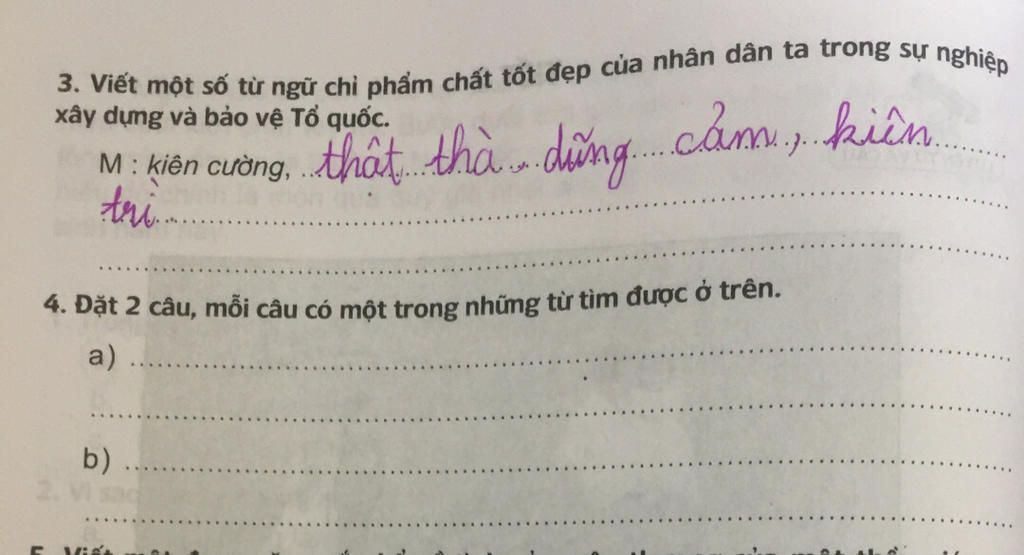 3. Viết một số từ ngữ chỉ phẩm chất tốt đẹp của nhân dân ta trong sự nghiệp
xây dựng và bảo vệ Tổ quốc.
M : kiên cường, thật thà, dũng cảm, kiên
trì
4. Đặt 2 câu, mỗi câu có một trong những từ tìm được ở trên.
a)
b)
2. Vì sao